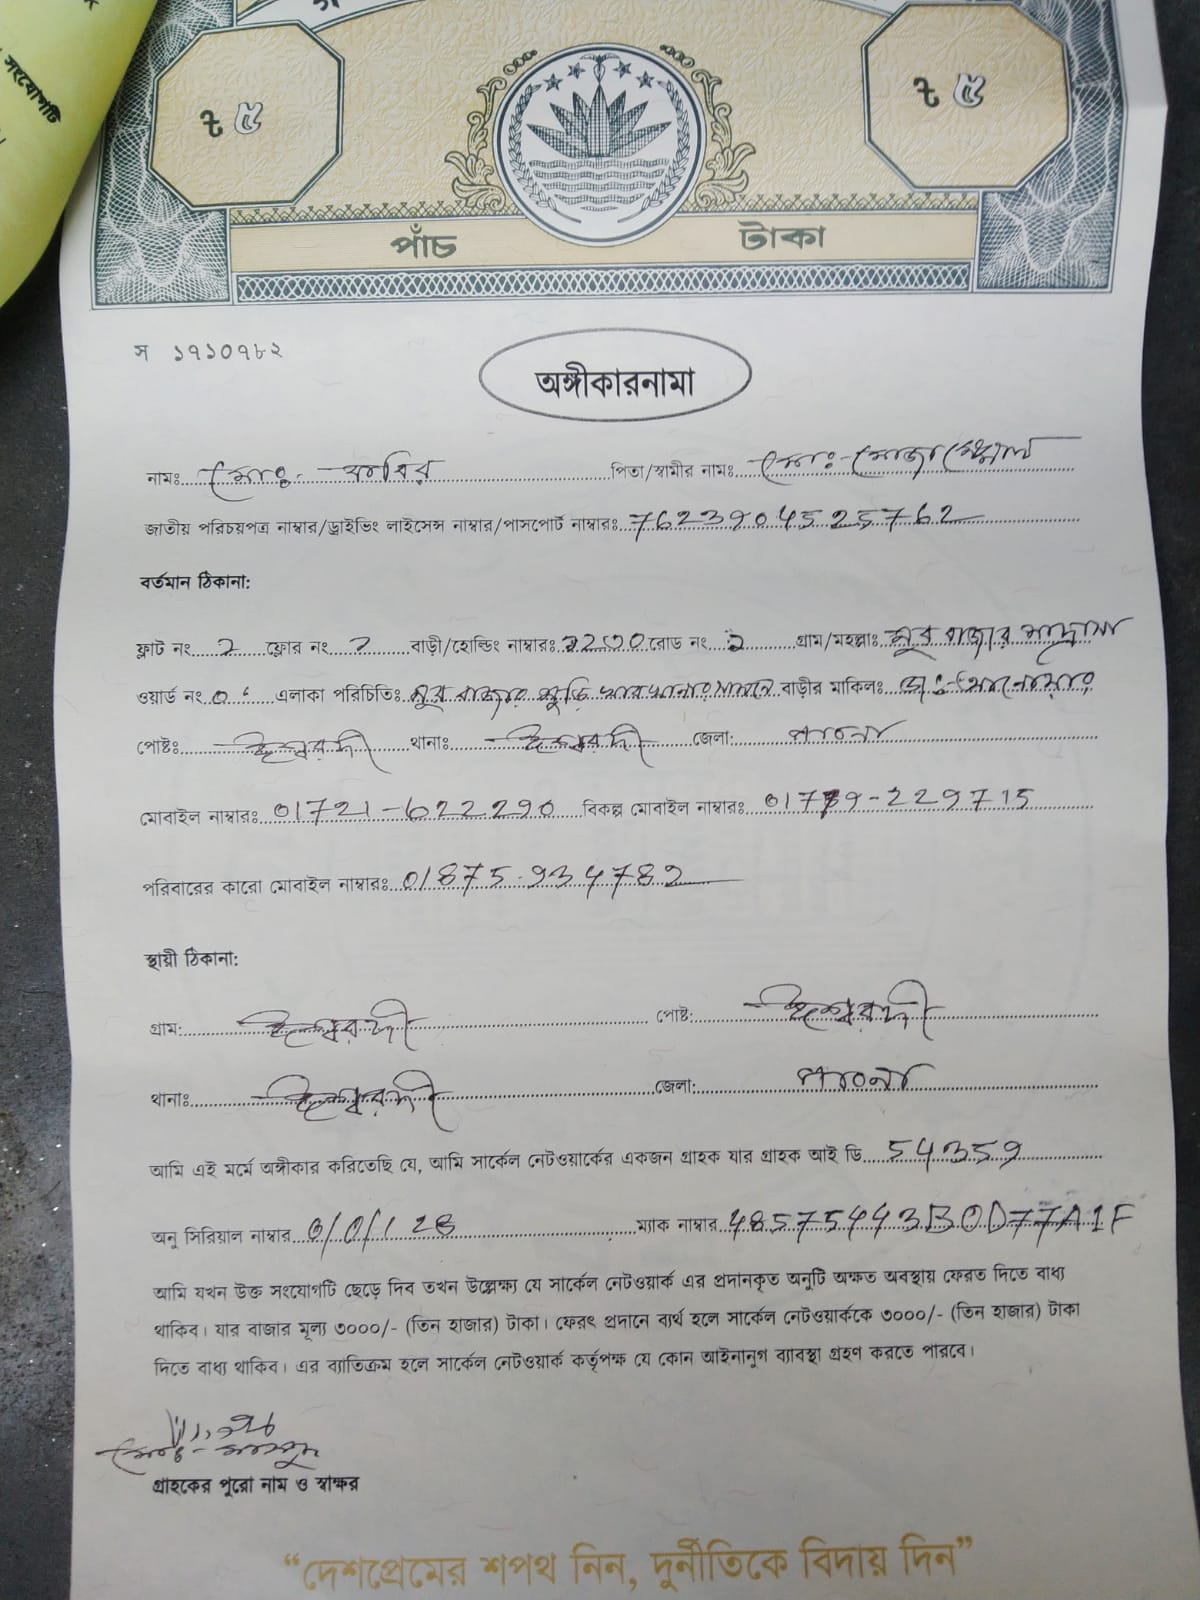 সংযোগটি
৳ ৫
৳ ৫
পাঁচ টাকা
স ১৭১০৭৮২
অঙ্গীকারনামা
নামঃ মোঃ- সাব্বির পিতা/স্বামীর নামঃ মোঃ- মোজাম্মেল
জাতীয় পরিচয়পত্র নাম্বার/ড্রাইভিং লাইসেন্স নাম্বার/পাসপোর্ট নাম্বারঃ 7623904525762
বর্তমান ঠিকানা:
ফ্লাট নং 2 ফ্লোর নং 2 বাড়ী/হোল্ডিং নাম্বারঃ রোড নং 2 গ্রাম/মহল্লাঃ নুর বাজার মাদ্রাসা
ওয়ার্ড নং এলাকা পরিচিতিঃ নুর বাজার মুড়ি কারখানার সামনে বাড়ীর মাকিলঃ
পোষ্টঃ ঈশ্বরদী থানাঃ ঈশ্বরদী জেলা: পাবনা
মোবাইল নাম্বারঃ 01721-622290 বিকল্প মোবাইল নাম্বারঃ 01789-229715
পরিবারের কারো মোবাইল নাম্বারঃ 01875-934782
স্থায়ী ঠিকানা:
গ্রাম: ঈশ্বরদী পোষ্ট: ঈশ্বরদী
থানাঃ ঈশ্বরদী জেলা: পাবনা
আমি এই মর্মে অঙ্গীকার করিতেছি যে, আমি সার্কেল নেটওয়ার্কের একজন গ্রাহক যার গ্রাহক আই ডি 54359
অনু সিরিয়াল নাম্বার 0/0/1 28 ম্যাক নাম্বার 48575443B0D77A1F
আমি যখন উক্ত সংযোগটি ছেড়ে দিব তখন উল্লেক্ষ্য যে সার্কেল নেটওয়ার্ক এর প্রদানকৃত অনুটি অক্ষত অবস্থায় ফেরত দিতে বাধ্য
থাকিব। যার বাজার মূল্য ৩০০০/- (তিন হাজার) টাকা। ফেরৎ প্রদানে ব্যর্থ হলে সার্কেল নেটওয়ার্ককে ৩০০০/- (তিন হাজার) টাকা
দিতে বাধ্য থাকিব। এর ব্যাতিক্রম হলে সার্কেল নেটওয়ার্ক কর্তৃপক্ষ যে কোন আইনানুগ ব্যাবস্থা গ্রহণ করতে পারবে।
মোঃ-
গ্রাহকের পুরো নাম ও স্বাক্ষর
“দেশপ্রেমের শপথ নিন, দুর্নীতিকে বিদায় দিন”